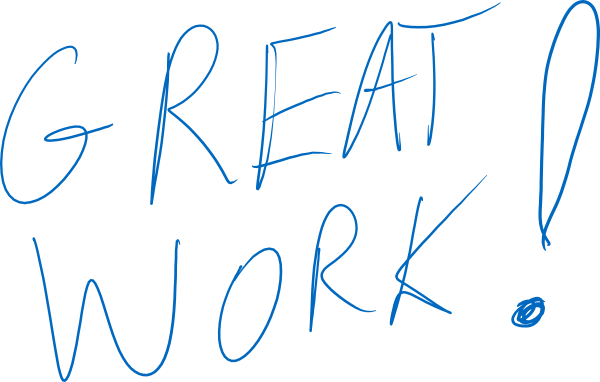 GREAT
WORK!